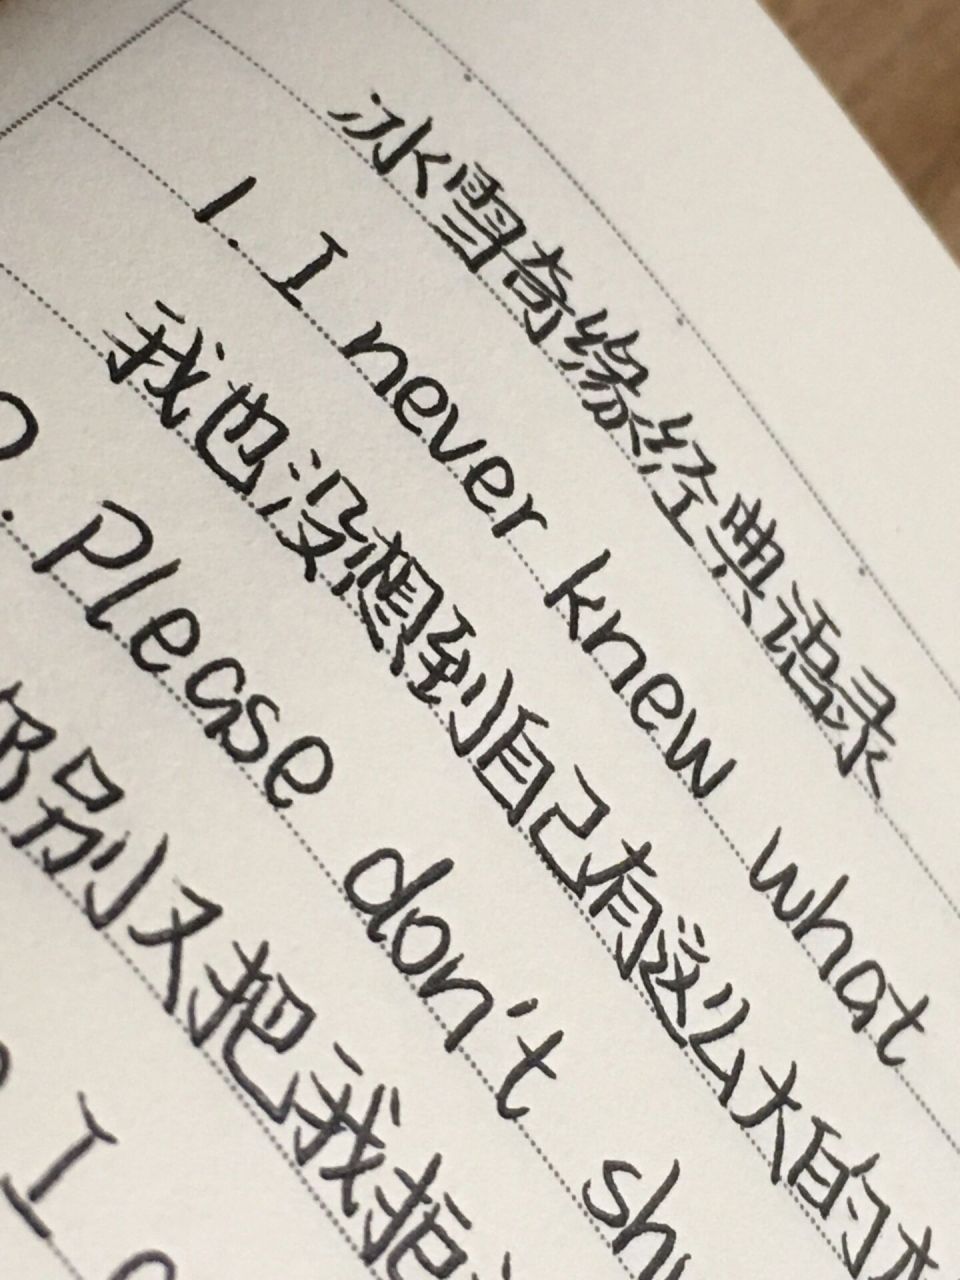 冰雪奇缘经典语录
1. I never knew what
我也没想到自己有这么大的
2. Please don't
别又把我拒
I